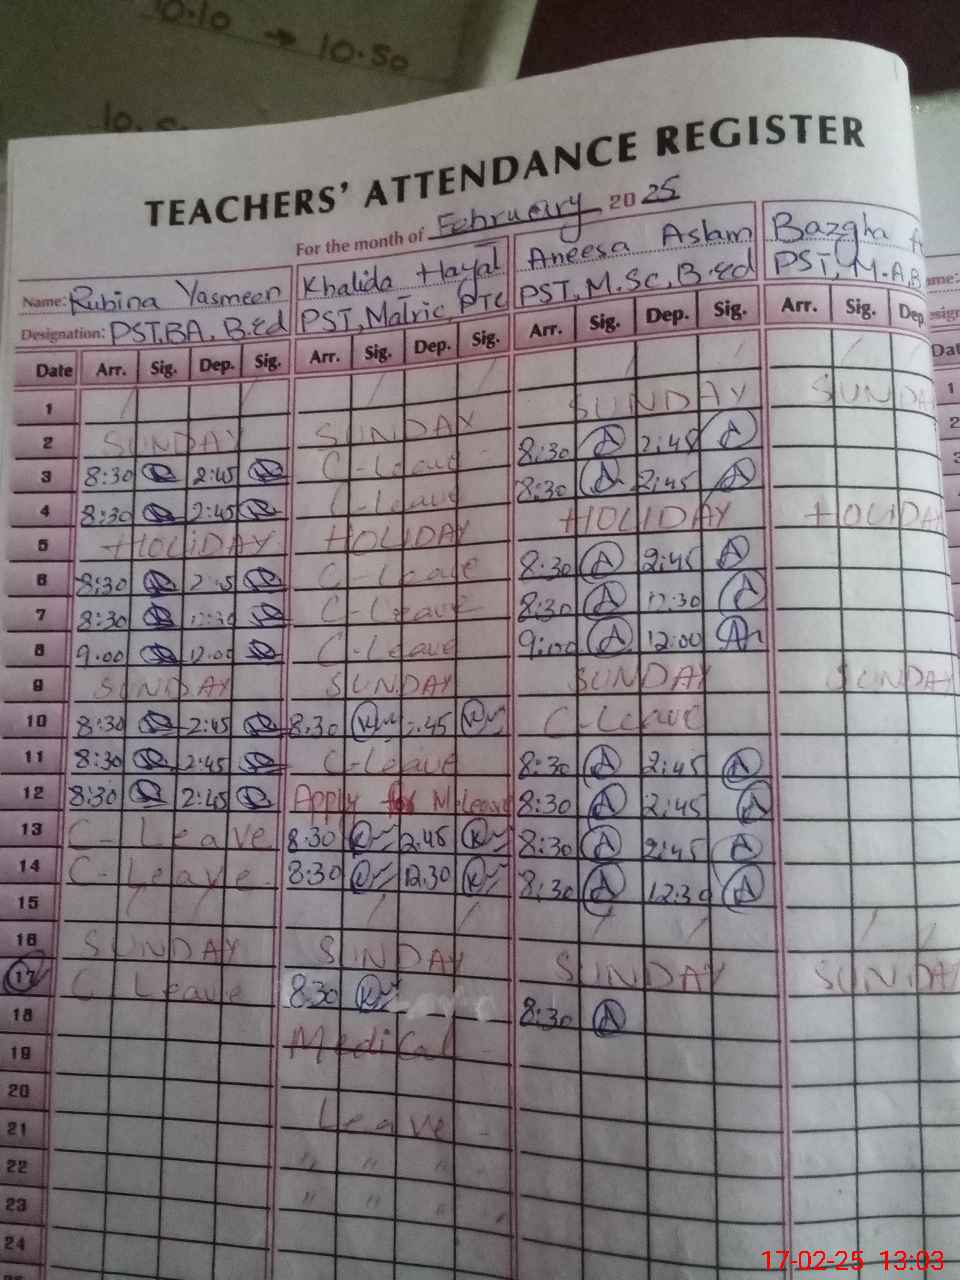 10.10 → 10.50
TEACHERS' ATTENDANCE REGISTER
For the month of February 2025
Name: Rubina Yasmeen Khalida Hayat Aneesa Aslam Bazgha
Designation: PST, BA, B.Ed PST, Matric, PTC PST, M.Sc, B.Ed PST, M.A, B
Date Arr. Sig. Dep. Sig. Arr. Sig. Dep. Sig. Arr. Sig. Dep. Sig. Arr. Sig. Dep
1 / / / / / / / /
2 SUNDAY SUNDAY SUNDAY SUNDAY
3 8:30 2:45 C-Leave 8:30 A 2:45 A
4 8:30 2:45 C-Leave 8:30 A 2:45 A
5 HOLIDAY HOLIDAY HOLIDAY HOLIDAY
6 8:30 2:45 C-Leave 8:30 A 2:45 A
7 8:30 12:30 C-Leave 8:30 A 12:30 A
8 9:00 12:00 C-Leave 9:00 A 12:00 A
9 SUNDAY SUNDAY SUNDAY SUNDAY
10 8:30 2:45 8:30 :45 C-Leave
11 8:30 2:45 C-Leave 8:30 A 2:45 A
12 8:30 2:45 Apply for M-Leave 8:30 A 2:45 A
13 C-Leave 8:30 2:45 8:30 A 2:45 A
14 C-Leave 8:30 12:30 8:30 A 12:30 A
15 / / / / / / / /
16 SUNDAY SUNDAY SUNDAY SUNDAY
17 C Leave 8:30 8:30 A
18
19 Medical
20
21 Leave
22 " " "
23 " " " "
24
17-02-25 13:03